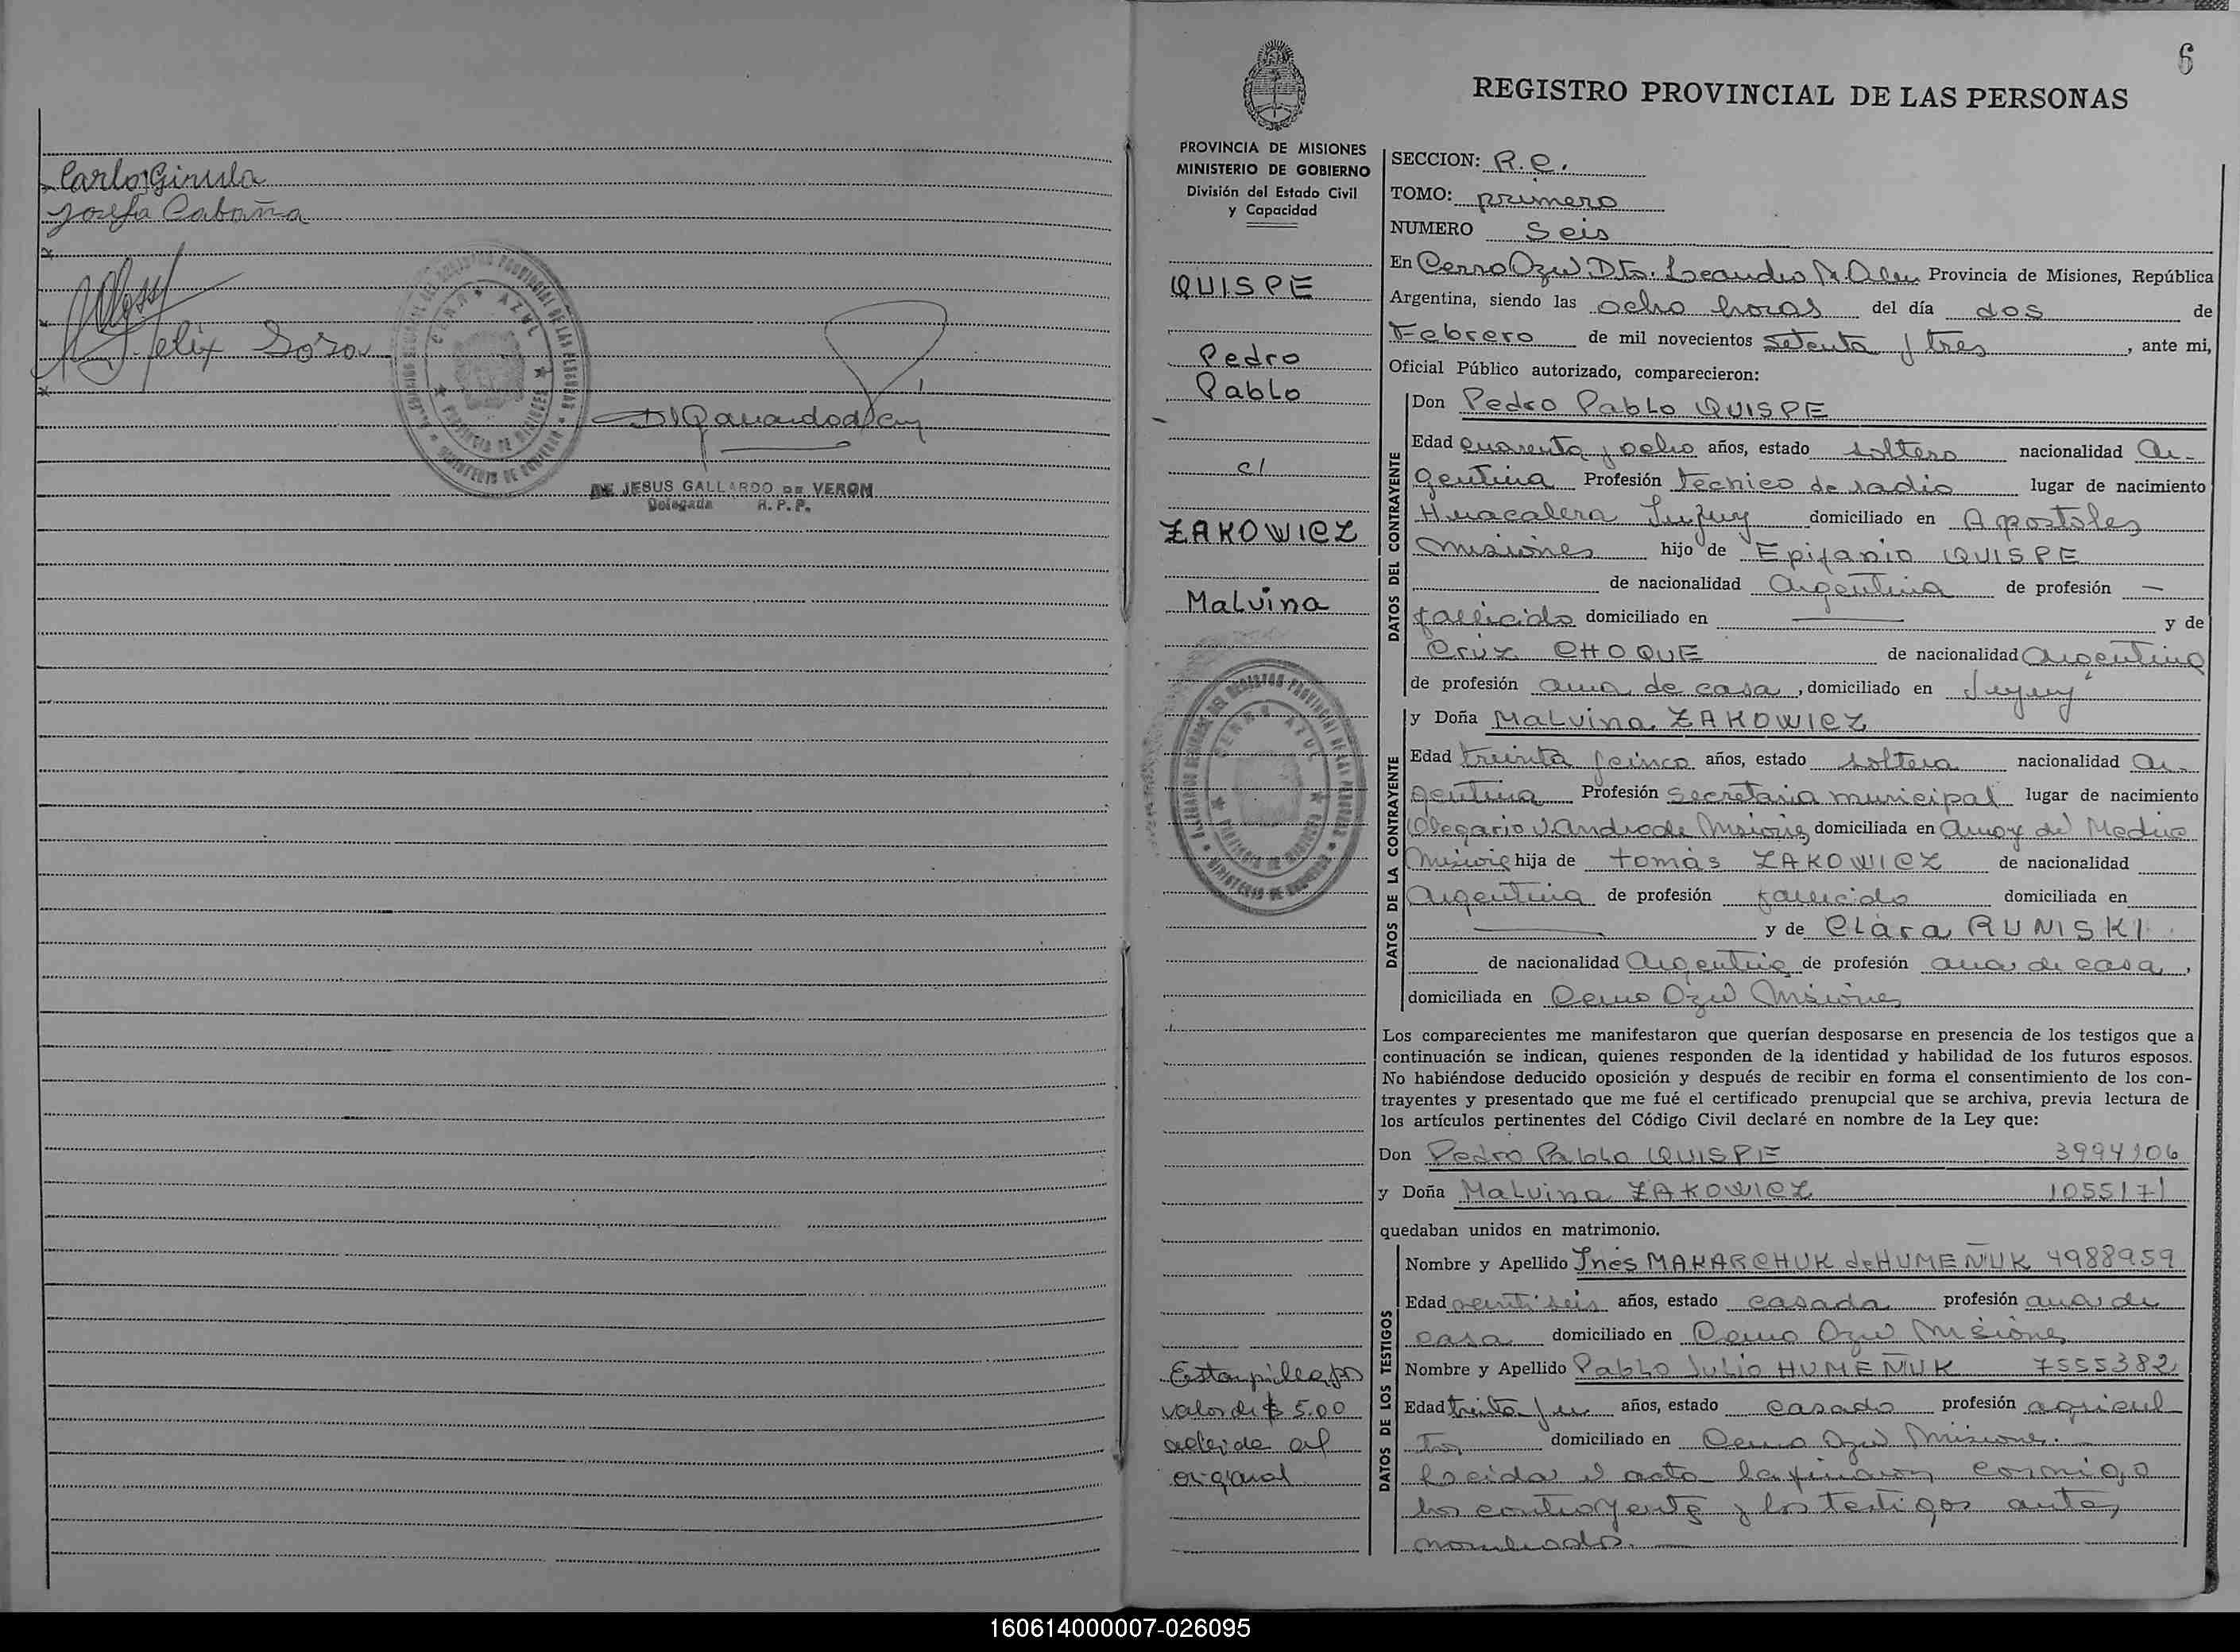 Carlos Girula
Josefa Cabaña
Felix Sosa
CERRO AZUL
PROVINCIA DE MISIONES
DE JESUS GALLARDO DE VERON
Delegada R.P.P.
6
REGISTRO PROVINCIAL DE LAS PERSONAS
PROVINCIA DE MISIONES
MINISTERIO DE GOBIERNO
División del Estado Civil
y Capacidad
QUISPE
Pedro
Pablo
c/
ZAKOWICZ
Malvina
CERRO AZUL
Estampilla por
valor de $ 5.00
adeida al
original
SECCION: R.C.
TOMO: primero
NUMERO Seis
En Cerro Azul Dto. Leandro N. Alem Provincia de Misiones, República
Argentina, siendo las ocho horas del día dos de
Febrero de mil novecientos setenta y tres, ante mi,
Oficial Público autorizado, comparecieron:
DATOS DEL CONTRAYENTE
Don Pedro Pablo QUISPE
Edad cuarenta y ocho años, estado soltero nacionalidad Ar-
gentina Profesión tecnico de radio lugar de nacimiento
Huacalera Jujuy domiciliado en Apostoles
Misiones hijo de Epifanio QUISPE
de nacionalidad Argentina de profesión —
fallecido domiciliado en — y de
Cruz CHOQUE de nacionalidad Argentina
de profesión ama de casa, domiciliado en Jujuy
DATOS DE LA CONTRAYENTE
y Doña Malvina ZAKOWICZ
Edad treinta y cinco años, estado soltera nacionalidad Ar-
gentina Profesión Secretaria municipal lugar de nacimiento
Olegario V. Andrade Misiones domiciliada en Arroyo del Medio
Misiones hija de tomás ZAKOWICZ de nacionalidad
Argentina de profesión fallecido domiciliada en
— y de Clara RUNISKI
de nacionalidad Argentina de profesión ama de casa,
domiciliada en Cerro Azul Misiones
Los comparecientes me manifestaron que querían desposarse en presencia de los testigos que a
continuación se indican, quienes responden de la identidad y habilidad de los futuros esposos.
No habiéndose deducido oposición y después de recibir en forma el consentimiento de los con-
trayentes y presentado que me fué el certificado prenupcial que se archiva, previa lectura de
los artículos pertinentes del Código Civil declaré en nombre de la Ley que:
Don Pedro Pablo QUISPE 3994106
y Doña Malvina ZAKOWICZ 1055171
quedaban unidos en matrimonio.
DATOS DE LOS TESTIGOS
Nombre y Apellido Inés MAKARCHUK de HUMEÑUK 4988959
Edad veintiseis años, estado casada profesión ama de
casa domiciliado en Cerro Azul Misiones
Nombre y Apellido Pablo Julio HUMEÑUK 7555382
Edad treinta y un años, estado casado profesión agricul
tor domiciliado en Cerro Azul Misiones.
Leida el acta la firmaron conmigo
los contrayentes y los testigos antes
nombrados.
160614000007-026095